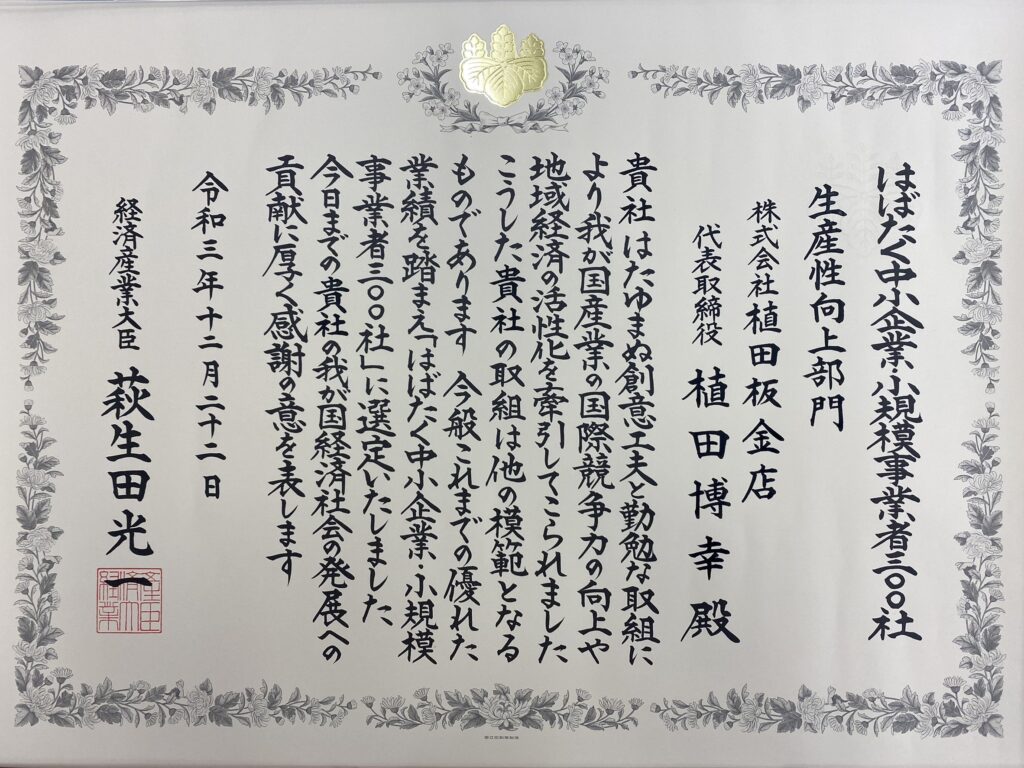 はばたく中小企業・小規模事業者三〇〇社
生産性向上部門
株式会社植田板金店
代表取締役 植田博幸 殿
貴社はたゆまぬ創意工夫と勤勉な取組に
より我が国産業の国際競争力の向上や
地域経済の活性化を牽引してこられました
こうした貴社の取組は他の模範となる
ものであります 今般これまでの優れた
業績を踏まえ「はばたく中小企業・小規模
事業者三〇〇社」に選定いたしました
今日までの貴社の我が国経済社会の発展への
貢献に厚く感謝の意を表します
令和三年十二月二十二日
経済産業大臣 萩生田光一